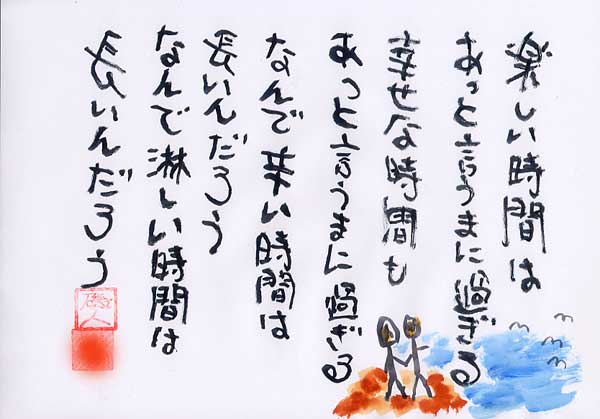 楽しい時間は
あっと言うまに過ぎる
幸せな時間も
あっと言うまに過ぎる
なんで辛い時間は
長いんだろう
なんで淋しい時間は
長いんだろう